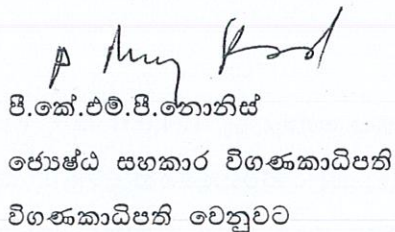 පී.කේ.එම්.පී.නොනිස්
ජ්‍යෙෂ්ඨ සහකාර විගණකාධිපති
විගණකාධිපති වෙනුවට